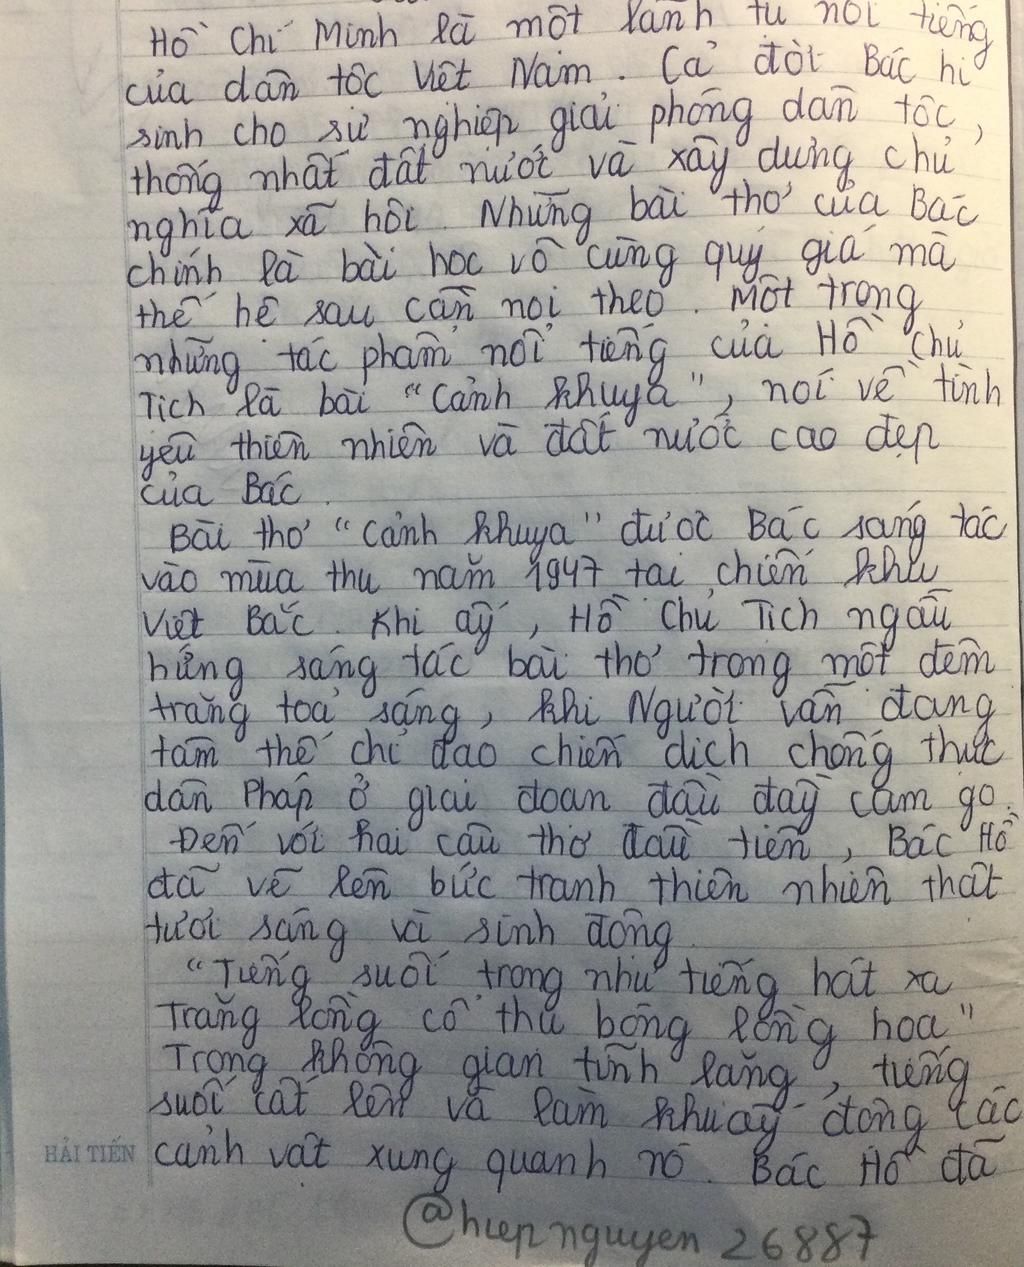 Hồ Chí Minh là một lãnh tụ nổi tiếng
của dân tộc Việt Nam. Cả đời Bác hi
sinh cho sự nghiệp giải phóng dân tộc,
thống nhất đất nước và xây dựng chủ
nghĩa xã hội. Những bài thơ của Bác
chính là bài học vô cùng quý giá mà
thế hệ sau cần noi theo. Một trong
những tác phẩm nổi tiếng của Hồ Chủ
Tịch là bài "Cảnh khuya", nói về tình
yêu thiên nhiên và đất nước cao đẹp
của Bác.
Bài thơ "Cảnh khuya" được Bác sáng tác
vào mùa thu năm 1947 tại chiến khu
Việt Bắc. Khi ấy, Hồ Chủ Tịch ngẫu
hứng sáng tác bài thơ trong một đêm
trăng toả sáng, khi Người vẫn đang
tâm thế chỉ đạo chiến dịch chống thực
dân Pháp ở giai đoạn đầu đầy cam go.
Đến với hai câu thơ đầu tiên, Bác Hồ
đã vẽ lên bức tranh thiên nhiên thật
tươi sáng và sinh động.
"Tiếng suối trong như tiếng hát xa
Trăng lồng cổ thụ bóng lồng hoa"
Trong không gian tĩnh lặng, tiếng
suối cất lên và làm khuấy động các
cảnh vật xung quanh nó. Bác Hồ đã
HẢI TIẾN
@hiepnguyen26887